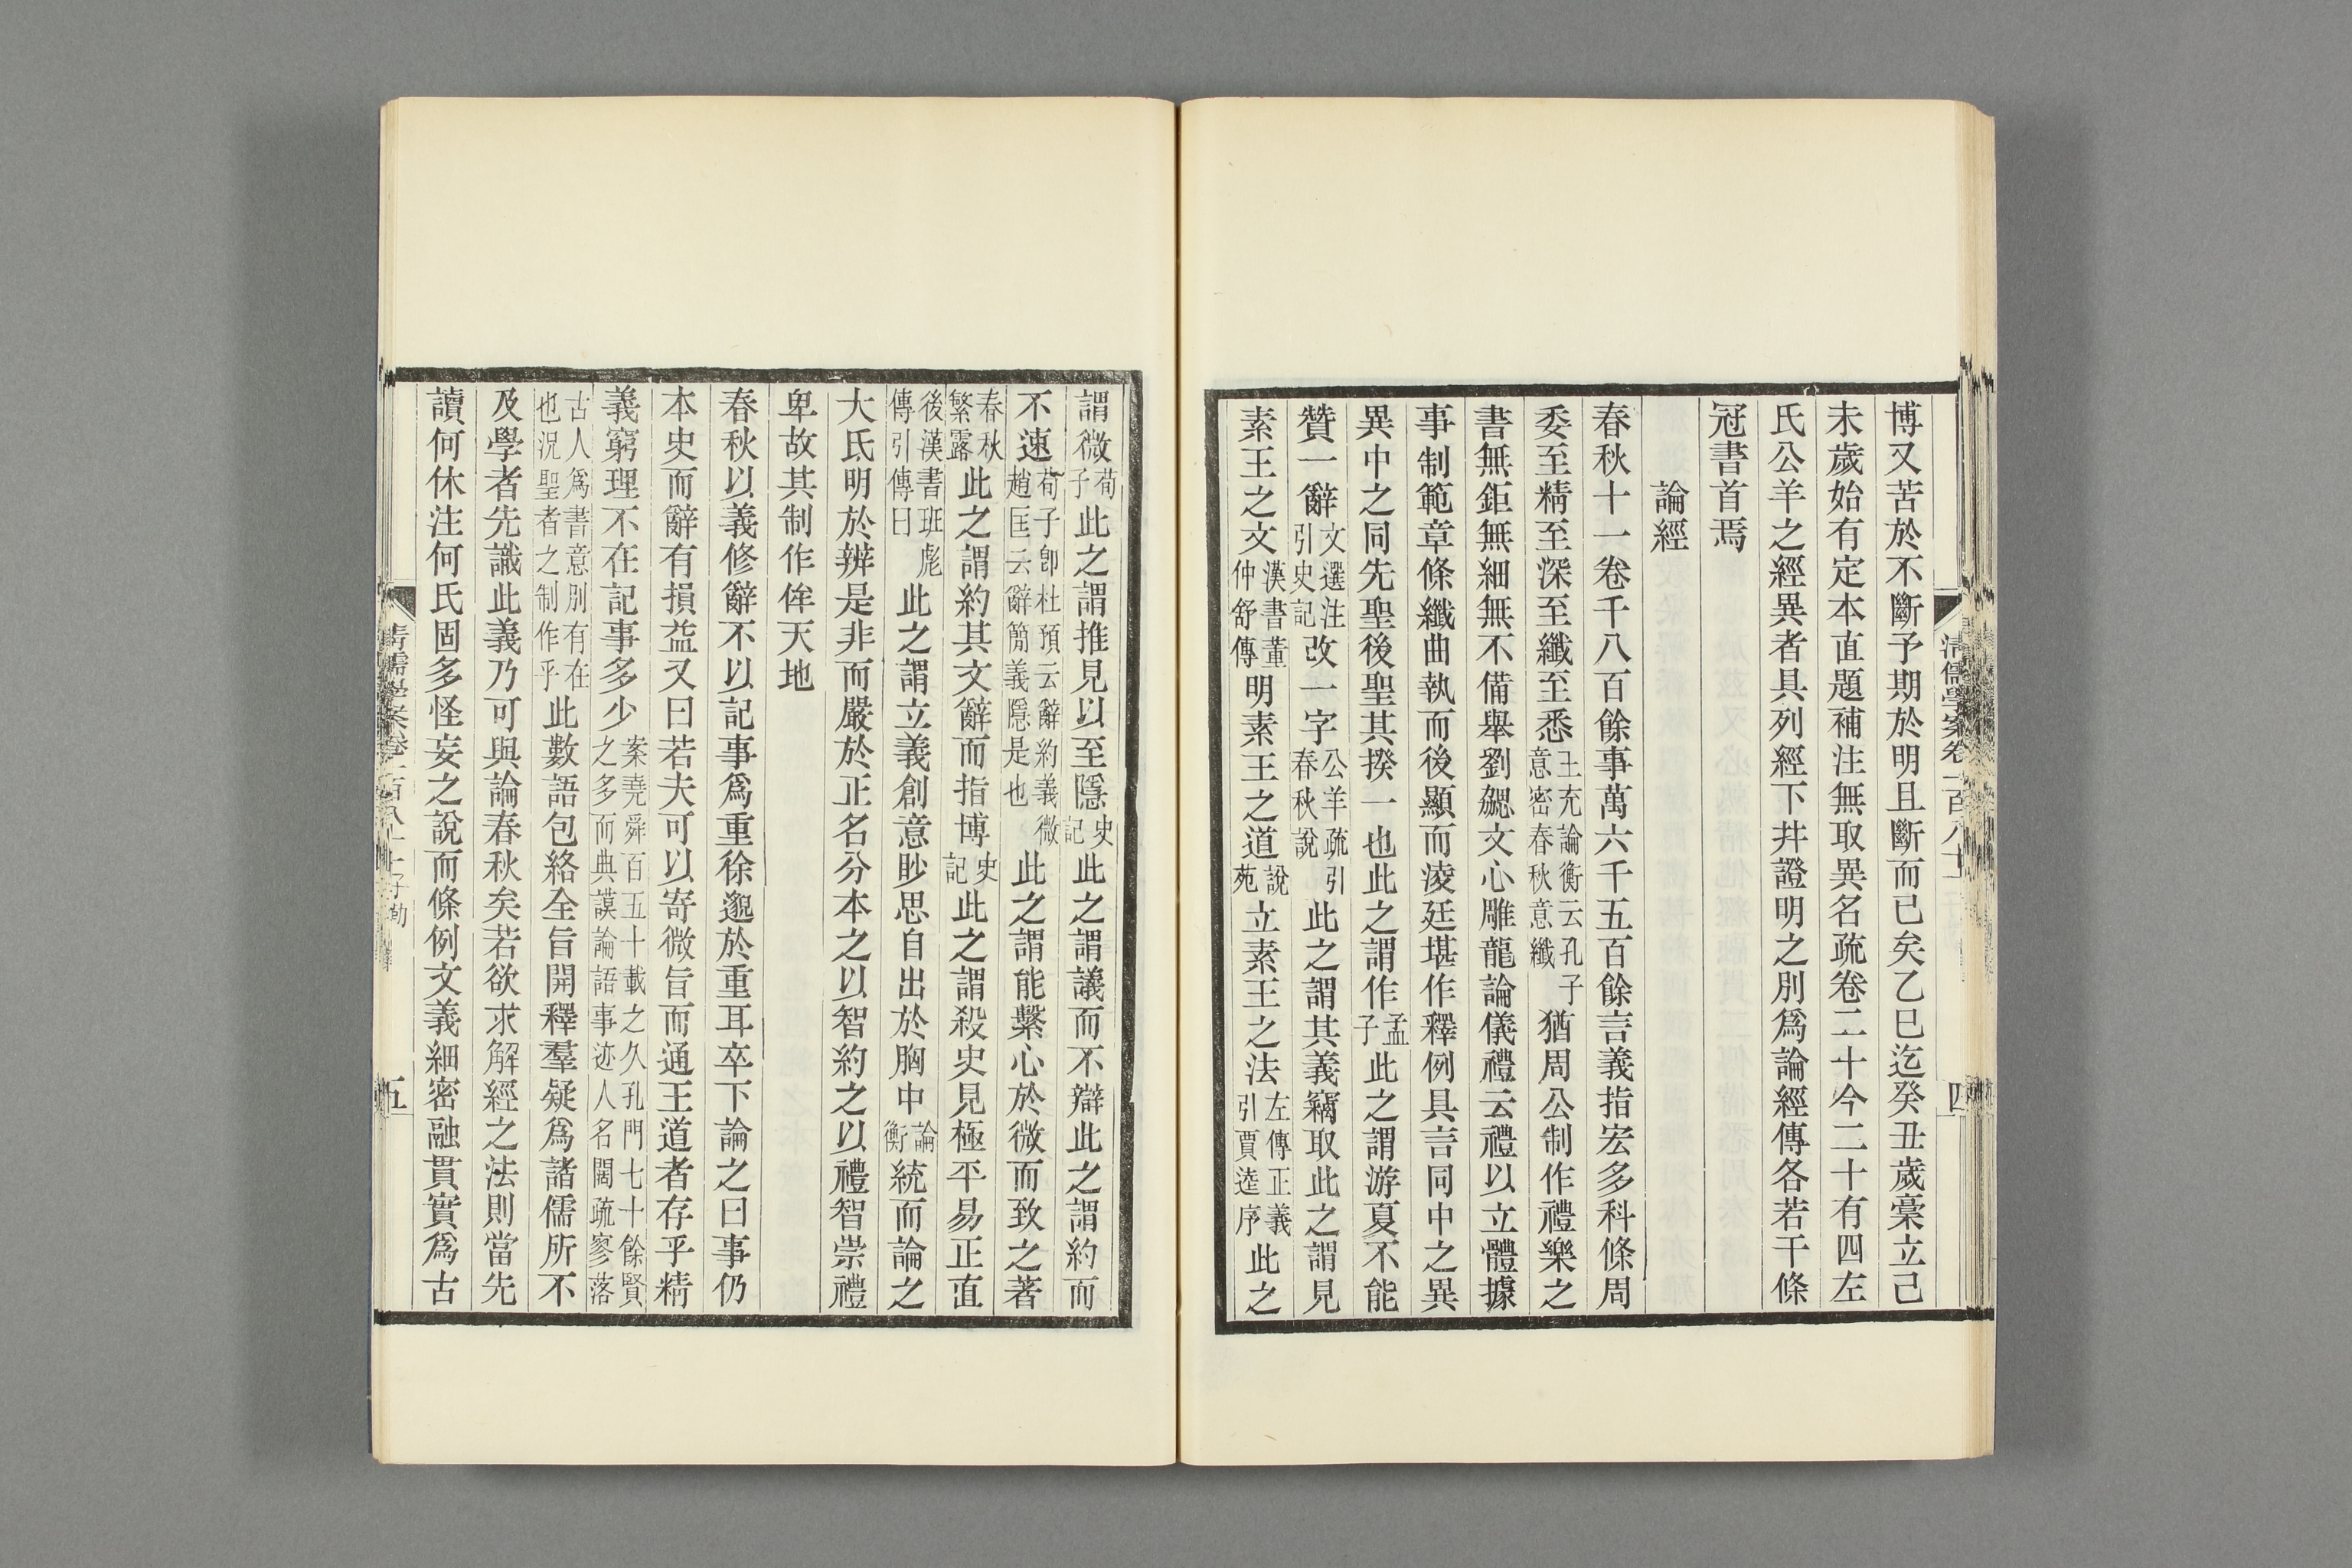 博又苦於不斷予期於明且斷而已矣乙巳迄癸丑歲稾立己
未歲始有定本直題補注無取異名疏卷二十今二十有四左
氏公羊之經異者具列經下幷證明之別爲論經傳各若干條
冠書首焉
論經
春秋十一卷千八百餘事萬六千五百餘言義指宏多科條周
委至精至深至纖至悉王充論衡云孔子意密春秋意纖猶周公制作禮樂之
書無鉅無細無不備舉劉勰文心雕龍論儀禮云禮以立體據
事制範章條纖曲執而後顯而淩廷堪作釋例具言同中之異
異中之同先聖後聖其揆一也此之謂作孟子此之謂游夏不能
贊一辭文選注引史記改一字公羊疏引春秋說此之謂其義竊取此之謂見
素王之文漢書董仲舒傳明素王之道說苑立素王之法左傳正義引賈逵序此之
清儒學案卷一百八十
四
謂微荀子此之謂推見以至隱史記此之謂議而不辯此之謂約而
不速荀子卽杜預云辭約義微趙匡云辭簡義隱是也此之謂能繫心於微而致之著
春秋繁露此之謂約其文辭而指博史記此之謂殺史見極平易正直
後漢書班彪傳引傳曰此之謂立義創意眇思自出於胸中論衡統而論之
大氐明於辨是非而嚴於正名分本之以智約之以禮智崇禮
卑故其制作侔天地
春秋以義修辭不以記事爲重徐邈於重耳卒下論之曰事仍
本史而辭有損益又曰若夫可以寄微旨而通王道者存乎精
義窮理不在記事多少案堯舜百五十載之久孔門七十餘賢之多而典謨論語事迹人名闊疏寥落
古人爲書意別有在也況聖者之制作乎此數語包絡全旨開釋羣疑爲諸儒所不
及學者先識此義乃可與論春秋矣若欲求解經之法則當先
讀何休注何氏固多怪妄之說而條例文義細密融貫實爲古
清儒學案卷一百八十 子勤
五